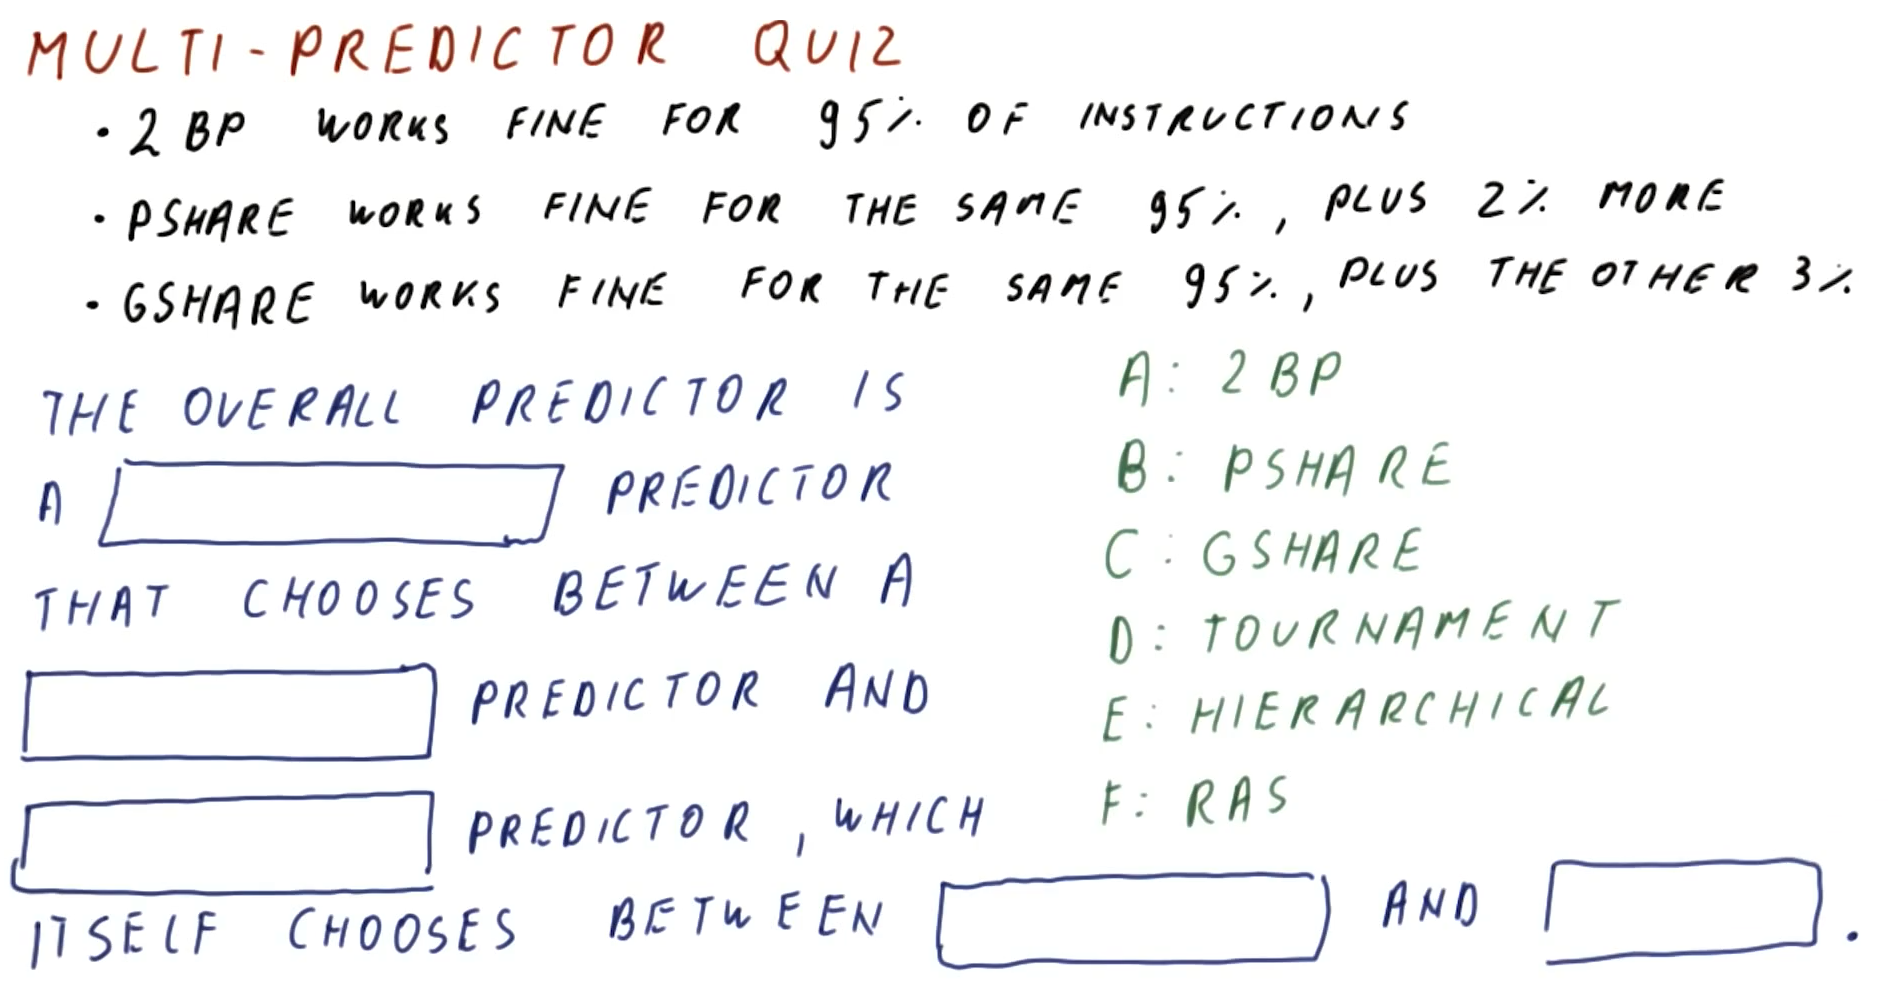 MULTI-PREDICTOR QUIZ
• 2BP WORKS FINE FOR 95% OF INSTRUCTIONS
• PSHARE WORKS FINE FOR THE SAME 95%, PLUS 2% MORE
• GSHARE WORKS FINE FOR THE SAME 95%, PLUS THE OTHER 3%
THE OVERALL PREDICTOR IS
A PREDICTOR
THAT CHOOSES BETWEEN A
PREDICTOR AND
PREDICTOR, WHICH
ITSELF CHOOSES BETWEEN AND .
A: 2BP
B: PSHARE
C: GSHARE
D: TOURNAMENT
E: HIERARCHICAL
F: RAS